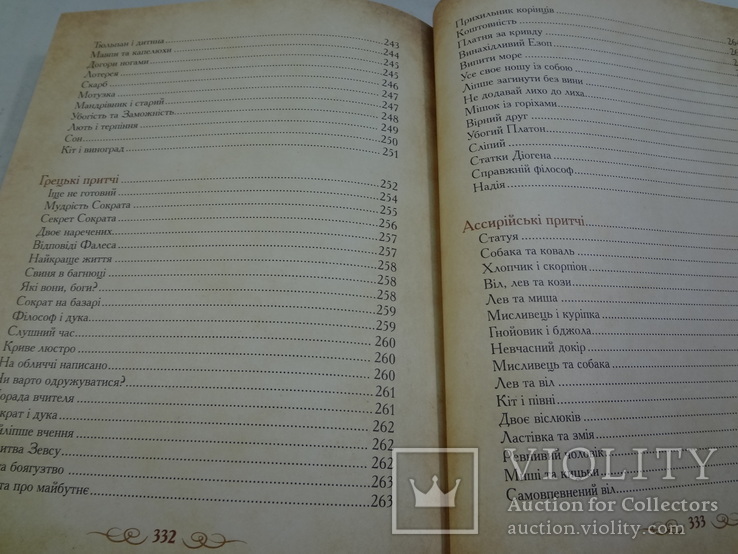 Тюльпан і дитина 243
Мавпи та капелюхи 244
Догори ногами 245
Лотерея 245
Скарб 246
Мотузка 247
Мандрівник і старий 247
Убогість та Заможність 248
Лють і терпіння 249
Сон 250
Кіт і виноград 251
Грецькі притчі 252
Іще не готовий 254
Мудрість Сократа 255
Секрет Сократа 256
Двоє наречених 257
Відповіді Фалеса 257
Найкраще життя 258
Свиня в багнюці 258
Які вони, боги? 258
Сократ на базарі 259
Філософ і дука 259
Слушний час 260
Криве люстро 260
На обличчі написано 260
Чи варто одружуватися? 261
орада вчителя 261
крат і дука 262
йліпше вчення 262
итва Зевсу 262
та боягузтво 263
та про майбутнє 263
332
Прихильник корінців
Коштовність
Платня за кривду
Винахідливий Езоп
Випити море
Усе своє ношу із собою
Ліпше загинути без вини
Не додавай лихо до лиха
Мішок із горіхами
Вірний друг
Убогий Платон
Сліпий
Статки Діогена
Справжній філософ
Надія
Ассирійські притчі
Статуя
Собака та коваль
Хлопчик і скорпіон
Віл, лев та кози
Лев та миша
Мисливець і куріпка
Гнойовик і бджола
Невчасний докір
Мисливець та собака
Лев та віл
Кіт і півні
Двоє віслюків
Ластівка та змія
Ревнивий чоловік
Миші та кицьки
Самовпевнений віл
333
VIOLITY
Auction for Collectors
auction.violity.com